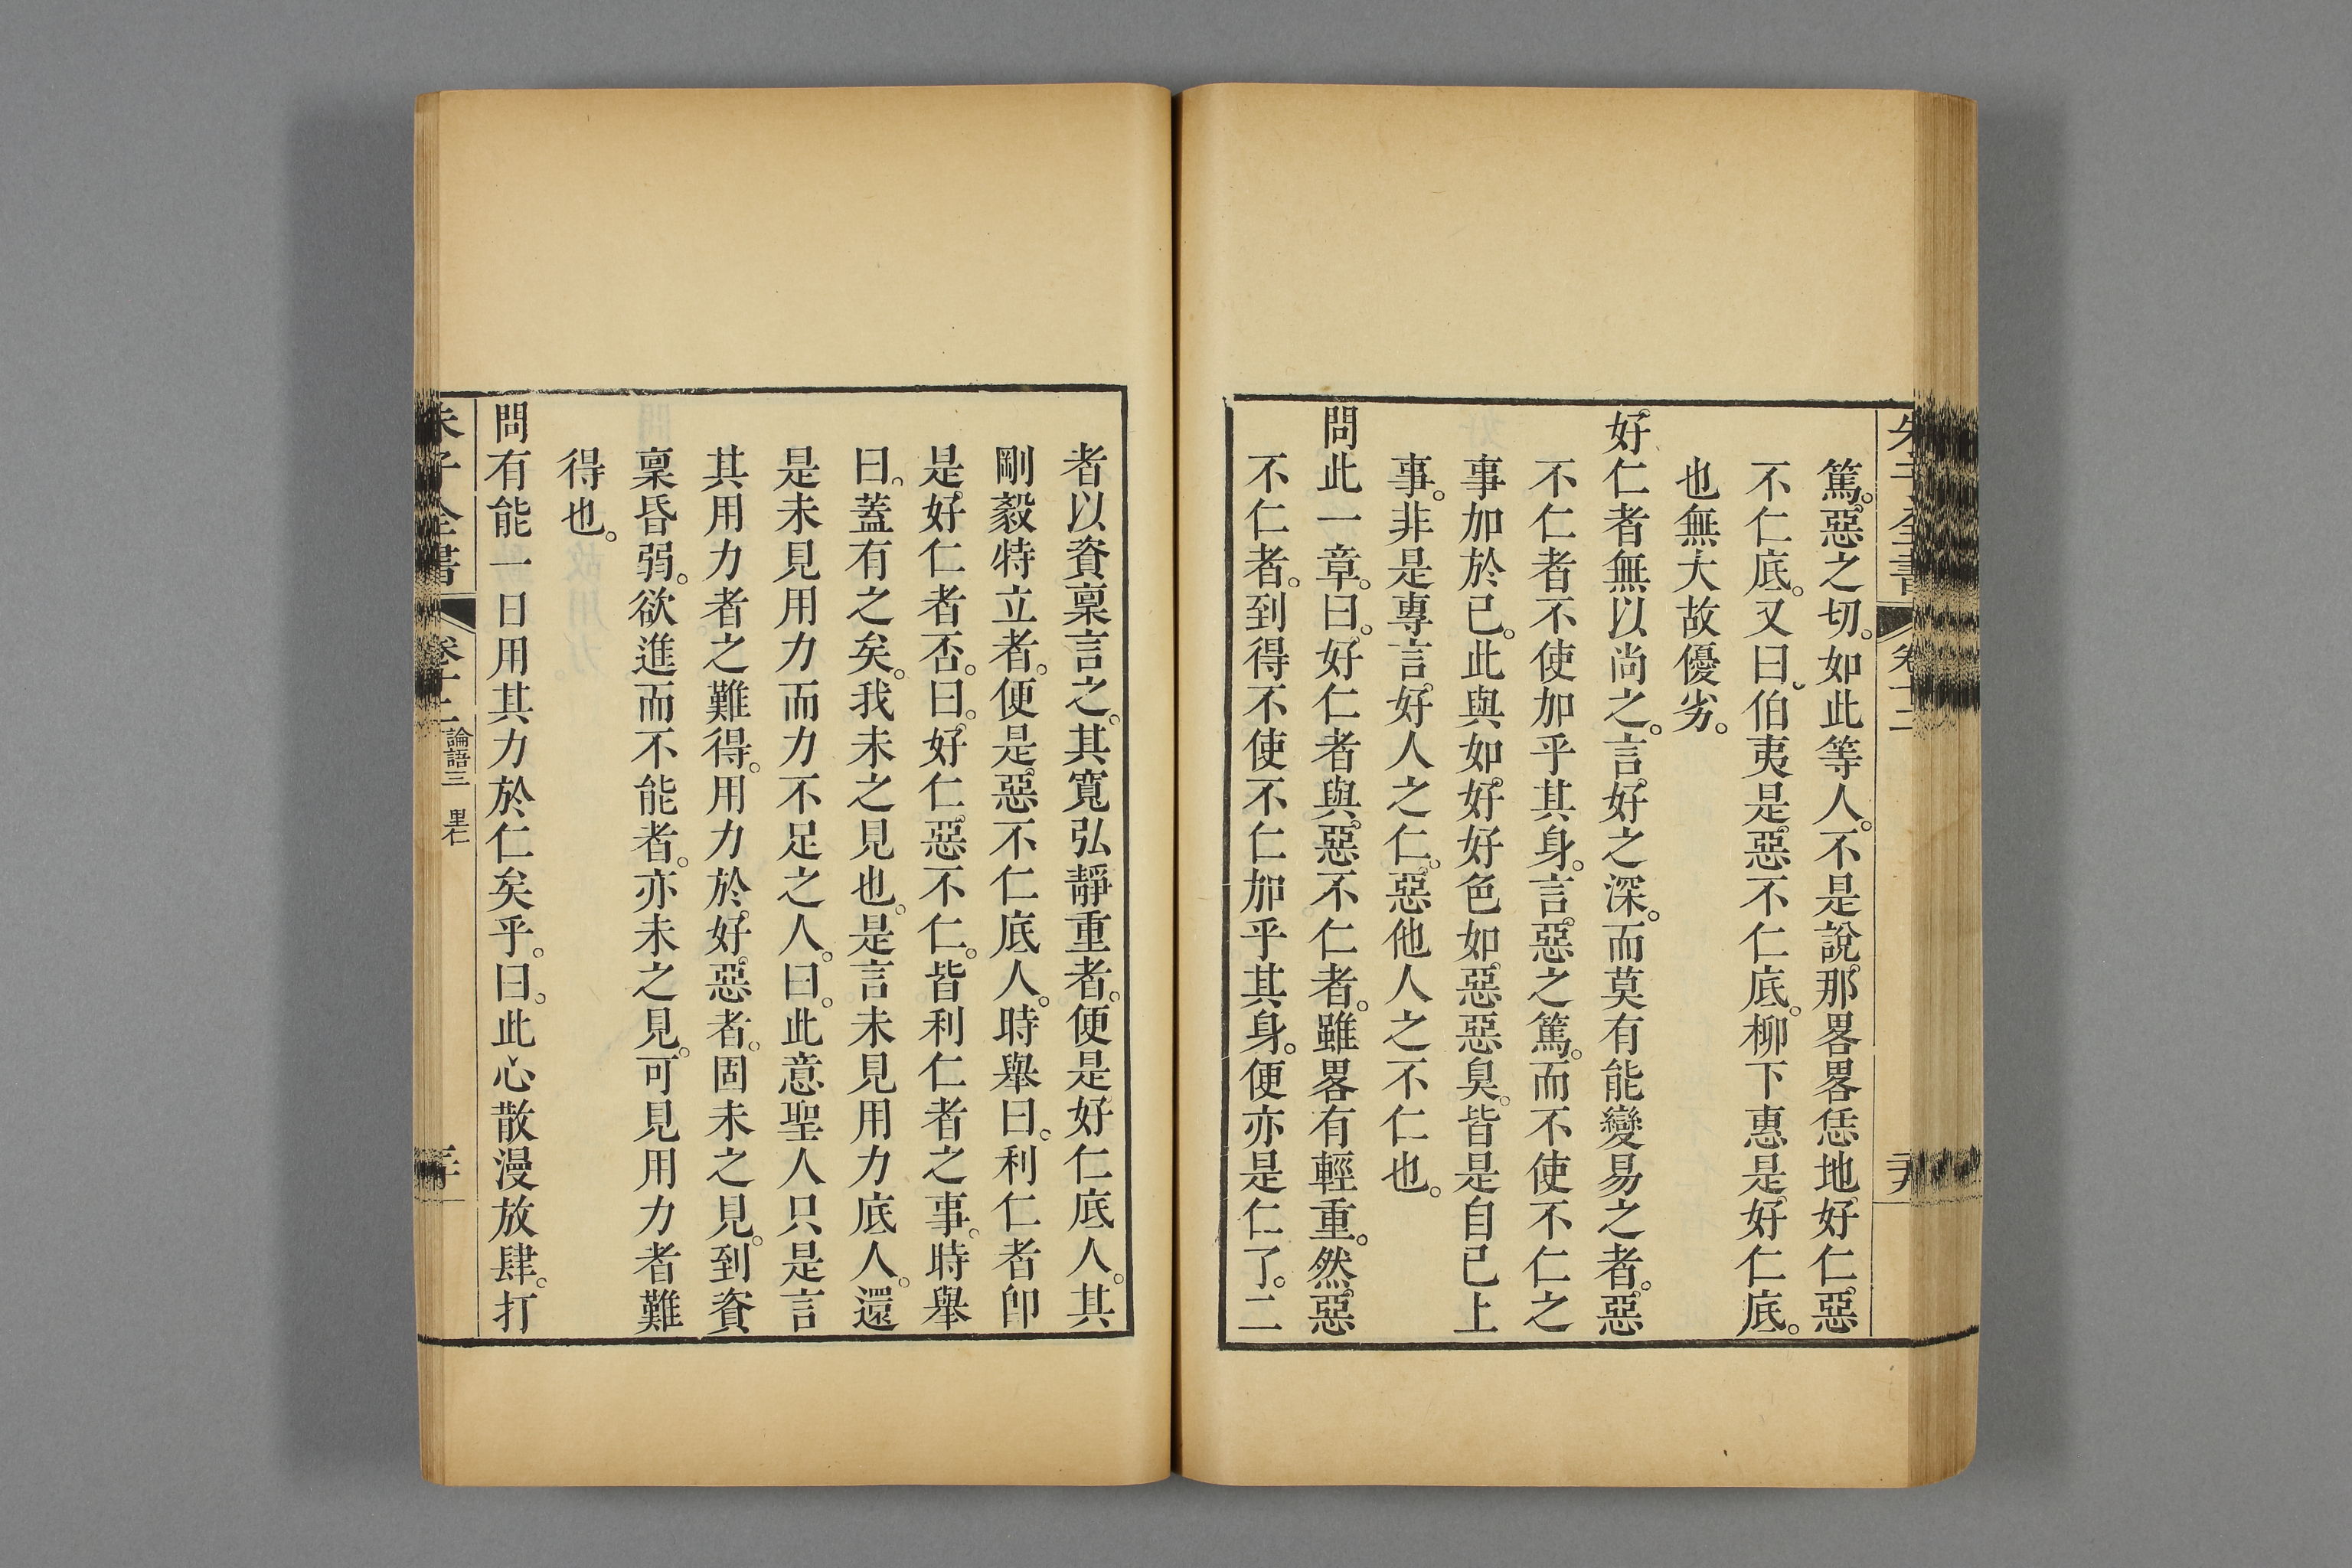 朱子全書 卷十二
篤。惡之切。如此等人。不是說那畧畧恁地好仁。惡
不仁底。又曰伯夷是惡不仁底。柳下惠是好仁底。
也無大故優劣。
好仁者無以尚之。言好之深。而莫有能變易之者。惡
不仁者不使加乎其身。言惡之篤。而不使不仁之
事加於已。此與如好好色如惡惡臭。皆是自已上
事。非是專言好人之仁。惡他人之不仁也。
問此一章。曰。好仁者與惡不仁者。雖畧有輕重。然惡
不仁者。到得不使不仁加乎其身。便亦是仁了。二
者以資稟言之。其寬弘靜重者。便是好仁底人。其
剛毅特立者。便是惡不仁底人。時舉曰。利仁者卽
是好仁者否。曰。好仁惡不仁。皆利仁者之事。時舉
曰。蓋有之矣。我未之見也。是言未見用力底人。還
是未見用力而力不足之人。曰。此意聖人只是言
其用力者之難得。用力於好惡者。固未之見。到資
稟昏弱。欲進而不能者。亦未之見。可見用力者難
得也。
問有能一日用其力於仁矣乎。曰。此心散漫放肆。打
朱子全書 卷十二 論語三 里仁